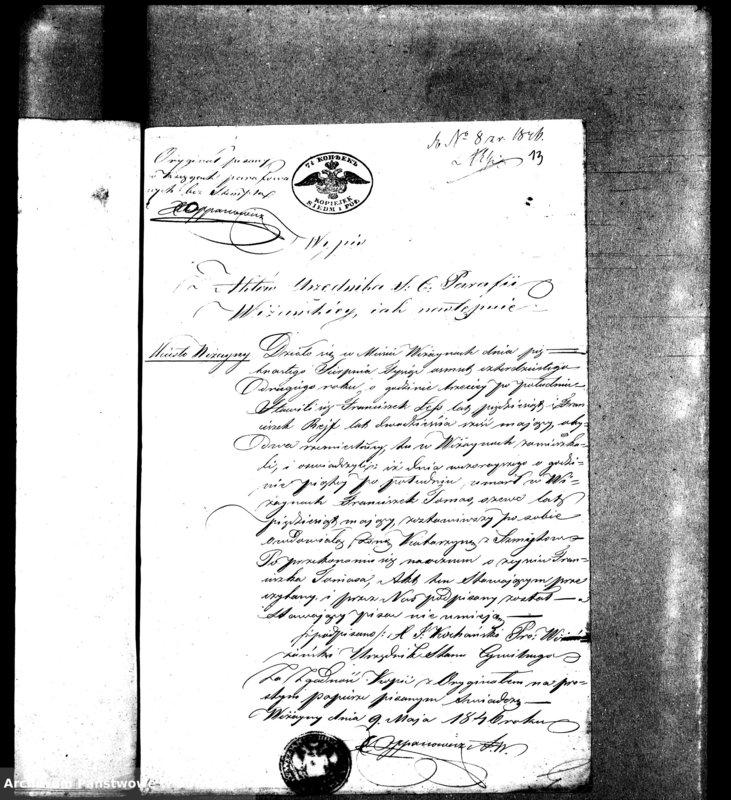 do Nº 8 z r. 1846.
13
Oryginał pisany
w księgach parafial
nych bez Stempla
7½ КОПѢЕКЪ
KOPIEJEK
SIEDM i PÓŁ.
Wypis
z Aktów Urzędnika S. C. Parafii
Wiżańskiéy, iak następuie:
Miasto Wiżayny
Działo się w Mieście Wiżaynach dnia pię-
tnastego Sierpnia tysiąc osmset czterdziestego
drugiego roku o godzinie trzeciey po południu
Stawili się Franciszek lat pięćdziesiąt i Fran-
ciszek Rejf lat dwadzieścia mający, oby-
dwa rzemieślnicy, tu w Wiżaynach zamieszka-
li, i oswiadczyli; iż dnia wczorayszego o godzi-
nie piątey po południu, umarł w Wi-
żaynach Franciszek Tomas, szewc lat
pięćdziesiąt mający, zostawiwszy po sobie
owdowiałą żonę Katarzynę z Szmigtow
Po przekonaniu się naocznem o zejściu Fran-
ciszka Tomasa, Akt ten Stawającym prze
czytany, i przez Nas podpisany został —
Stawający pisać nie umieją —
/: podpisano :/ X J. Kochański Pro: Wiżań
Urzędnik Stanu Cywilnego
Za Zgodność Kopii z Oryginałem na pro-
stym papierze pisanym świadczę —
Wiżayny dnia 9 Maja 1846 roku
Archiwum Państwowe